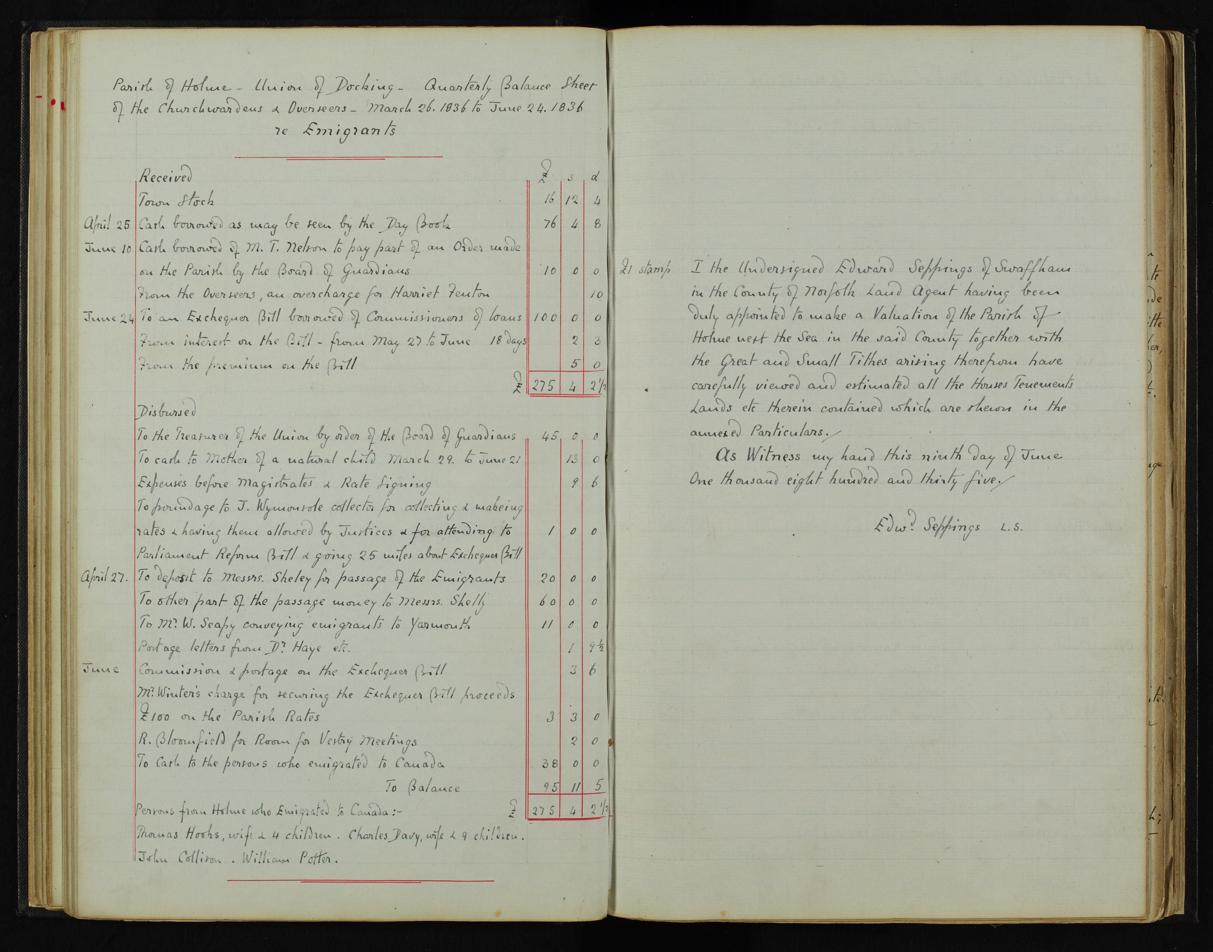 Parish of Holme - Union of Docking - Quarterly Balance Sheet
of the Churchwardens & Overseers - March 26. 1836 to June 24. 1836
re Emigrants
Received £ s d
Town Stock 16 12 4
April 25 Cash borrowed as may be seen by the Day Book 76 4 8
June 10 Cash borrowed of M. T. Nelson to pay part of an Order made
on the Parish by the Board of Guardians 10 0 0
From the Overseers, an overcharge for Harriet Fenton 10
June 24 To an Exchequer Bill borrowed of Commissioners of loans 100 0 0
From interest on the Bill - from May 27 to June 18 days 2 3
From the premium on the Bill 5 0
£ 275 4 2½
Disbursed
To the Treasurer of the Union by order of the Board of Guardians 45 0 0
To cash to Mother of a natural child March 29. to June 21 13 0
Expenses before Magistrates & Rate Signing 9 6
To poundage to J. collector for collecting & makeing
rates & having them allowed by Justices & for attending to 1 0 0
Parliament Reform Bill & going 25 miles about Exchequer Bill
April 27. To deposit to Messrs. Sheley for passage of the Emigrants 20 0 0
To other part of the passage money to Messrs. Shelly 60 0 0
To Mr. W. Seapy conveying emigrants to Yarmouth 11 0 0
Portage letters from Dr. Haye etc. 1 9½
June Commission & portage on the Exchequer Bill 3 6
Mr. Winter's charge for securing the Exchequer Bill proceeds
£100 on the Parish Rates 3 3 0
R. Bloomfield for Room for Vestry Meetings 2 0
To Cash to the persons who emigrated to Canada 38 0 0
To Balance 95 11 5
Persons from Holme who Emigrated to Canada:- £ 275 4 2½
Thomas Hooks, wife & 4 children. Charles Davy, wife & 9 children.
John Collison. William Potter.
£1 stamp I the Undersigned Edward Seppings of Swaffham
in the County of Norfolk Land Agent having been
duly appointed to make a Valuation of the Parish of
Holme next the Sea in the said County together with
the Great and Small Tithes arising therefrom have
carefully viewed and estimated all the Houses Tenements
Lands etc therein contained which are shewn in the
annexed Particulars.
As Witness my hand this ninth day of June
One thousand eight hundred and thirty five.
Edwd. Seppings L.S.